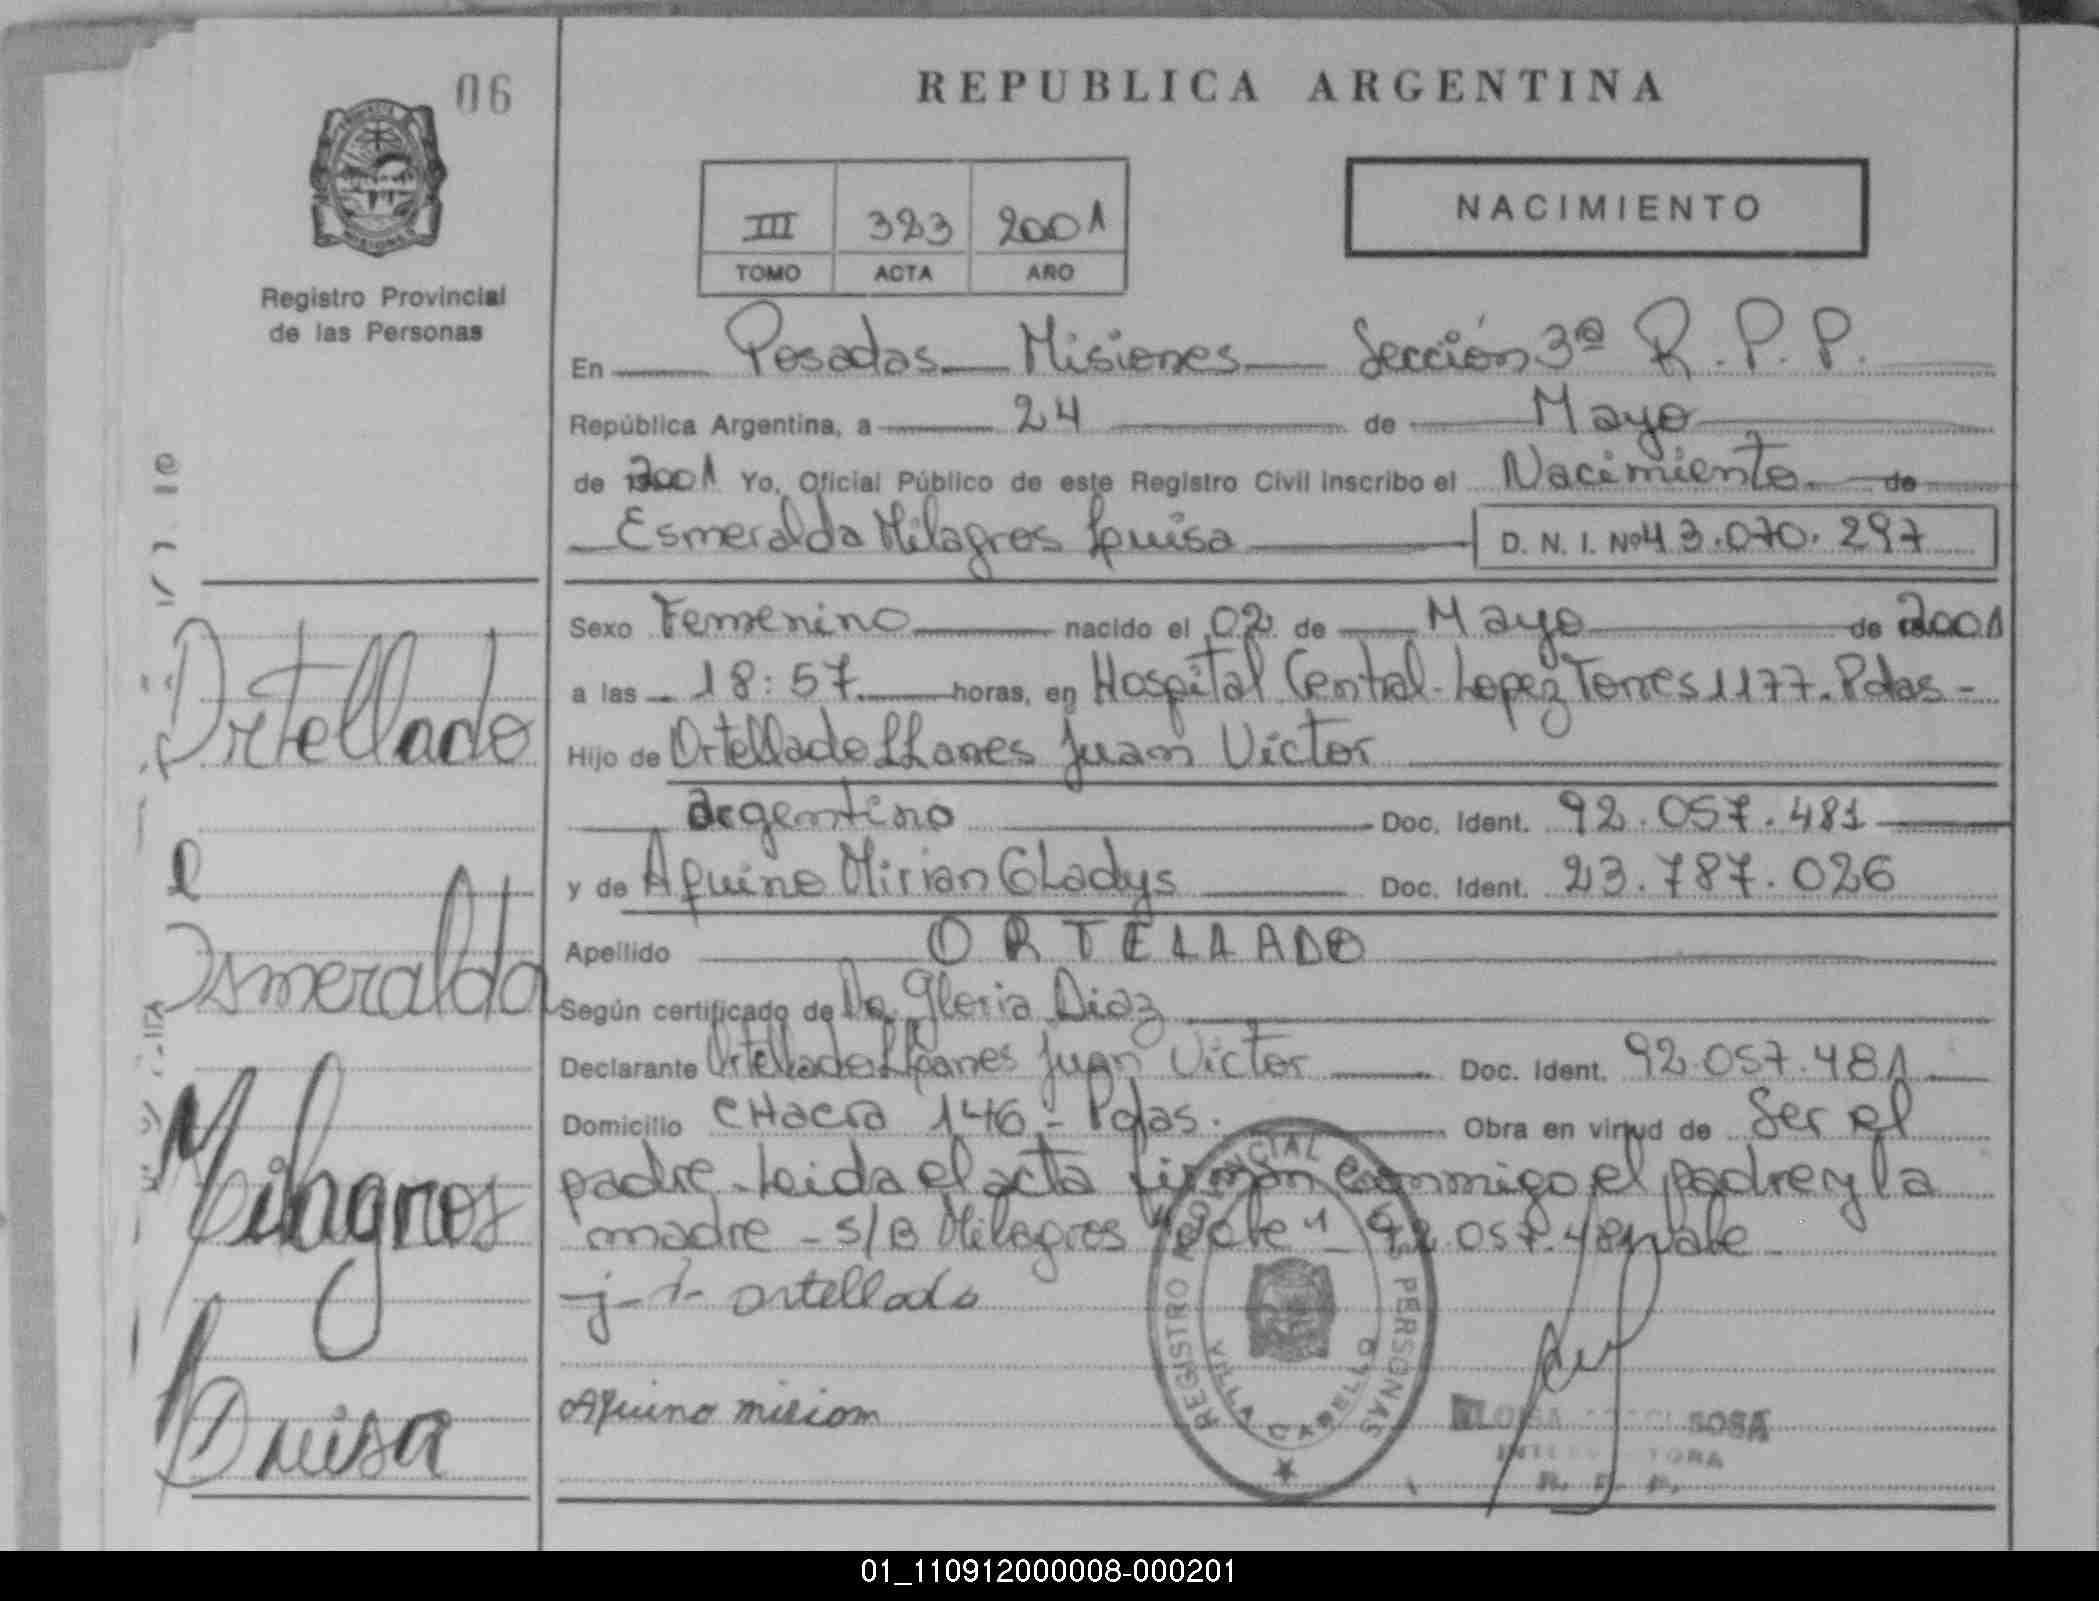 06
REPUBLICA ARGENTINA
NACIMIENTO
III 323 2001
TOMO ACTA AÑO
Registro Provincial
de las Personas
En Posadas Misiones Sección 3ª R.P.P.
República Argentina, a 24 de Mayo
de 2001 Yo, Oficial Público de este Registro Civil inscribo el Nacimiento de
Esmeralda Milagros Luisa D. N. I. Nº 43.070.297
Sexo Femenino nacido el 02 de Mayo de 2001
a las 18:57 horas, en Hospital Central-Lopez Torres 1177.Pdas-
Hijo de Ortellado LLanes Juan Victor
argentino Doc. Ident. 92.057.481
y de Aquino Mirian GLadys Doc. Ident. 23.787.026
Apellido ORTELLADO
Según certificado de Dra. Gloria Diaz
Declarante Ortellado LLanes Juan Victor Doc. Ident. 92.057.481
Domicilio CHacra 146 - Pdas. Obra en virtud de Ser el
padre-Leida el acta firman conmigo el padre y la
madre - S/B Milagros 92.057.481 vale
j-v- ortellado
Aquino miriam
Ortellado
Esmeralda
Milagros
Luisa
REGISTRO PROVINCIAL PERSONAS
VILLA CABELLO
SOSA
R. P. P.
01_110912000008-000201